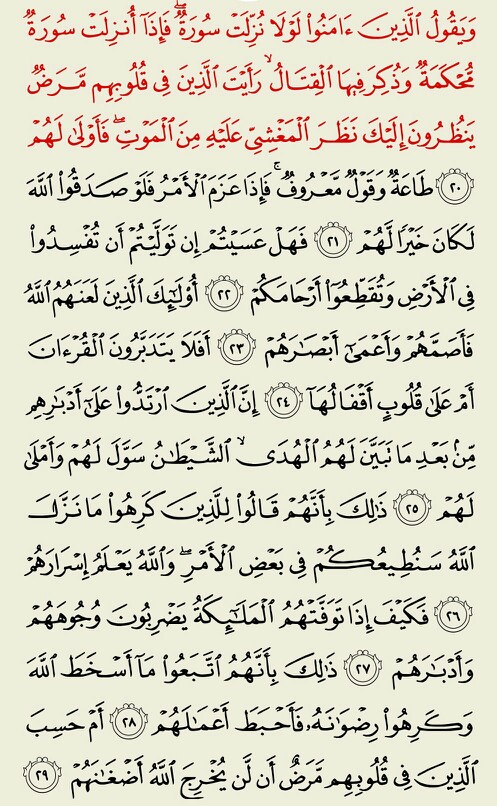 وَيَقُولُ ٱلَّذِينَ ءَامَنُوا۟ لَوْلَا نُزِّلَتْ سُورَةٌ ۖ فَإِذَآ أُنزِلَتْ سُورَةٌ
مُّحْكَمَةٌ وَذُكِرَ فِيهَا ٱلْقِتَالُ ۙ رَأَيْتَ ٱلَّذِينَ فِى قُلُوبِهِم مَّرَضٌ
يَنظُرُونَ إِلَيْكَ نَظَرَ ٱلْمَغْشِىِّ عَلَيْهِ مِنَ ٱلْمَوْتِ ۖ فَأَوْلَىٰ لَهُمْ
٢٠ طَاعَةٌ وَقَوْلٌ مَّعْرُوفٌ ۚ فَإِذَا عَزَمَ ٱلْأَمْرُ فَلَوْ صَدَقُوا۟ ٱللَّهَ
لَكَانَ خَيْرًا لَّهُمْ ٢١ فَهَلْ عَسَيْتُمْ إِن تَوَلَّيْتُمْ أَن تُفْسِدُوا۟
فِى ٱلْأَرْضِ وَتُقَطِّعُوٓا۟ أَرْحَامَكُمْ ٢٢ أُو۟لَٰٓئِكَ ٱلَّذِينَ لَعَنَهُمُ ٱللَّهُ
فَأَصَمَّهُمْ وَأَعْمَىٰٓ أَبْصَٰرَهُمْ ٢٣ أَفَلَا يَتَدَبَّرُونَ ٱلْقُرْءَانَ
أَمْ عَلَىٰ قُلُوبٍ أَقْفَالُهَآ ٢٤ إِنَّ ٱلَّذِينَ ٱرْتَدُّوا۟ عَلَىٰٓ أَدْبَٰرِهِم
مِّنۢ بَعْدِ مَا تَبَيَّنَ لَهُمُ ٱلْهُدَى ۙ ٱلشَّيْطَٰنُ سَوَّلَ لَهُمْ وَأَمْلَىٰ
لَهُمْ ٢٥ ذَٰلِكَ بِأَنَّهُمْ قَالُوا۟ لِلَّذِينَ كَرِهُوا۟ مَا نَزَّلَ
ٱللَّهُ سَنُطِيعُكُمْ فِى بَعْضِ ٱلْأَمْرِ ۖ وَٱللَّهُ يَعْلَمُ إِسْرَارَهُمْ
٢٦ فَكَيْفَ إِذَا تَوَفَّتْهُمُ ٱلْمَلَٰٓئِكَةُ يَضْرِبُونَ وُجُوهَهُمْ
وَأَدْبَٰرَهُمْ ٢٧ ذَٰلِكَ بِأَنَّهُمُ ٱتَّبَعُوا۟ مَآ أَسْخَطَ ٱللَّهَ
وَكَرِهُوا۟ رِضْوَٰنَهُۥ فَأَحْبَطَ أَعْمَٰلَهُمْ ٢٨ أَمْ حَسِبَ
ٱلَّذِينَ فِى قُلُوبِهِم مَّرَضٌ أَن لَّن يُخْرِجَ ٱللَّهُ أَضْغَٰنَهُمْ ٢٩